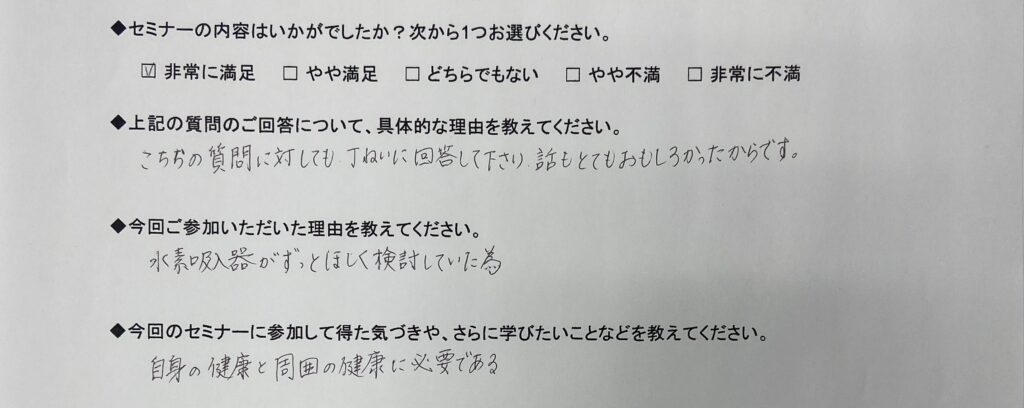 ◆セミナーの内容はいかがでしたか？次から1つお選びください。
☑ 非常に満足 □ やや満足 □ どちらでもない □ やや不満 □ 非常に不満
◆上記の質問のご回答について、具体的な理由を教えてください。
こちらの質問に対しても、丁ねいに回答して下さり、話もとてもおもしろかったからです。
◆今回ご参加いただいた理由を教えてください。
水素吸入器がずっとほしく検討していた為
◆今回のセミナーに参加して得た気づきや、さらに学びたいことなどを教えてください。
自身の健康と周囲の健康に必要である